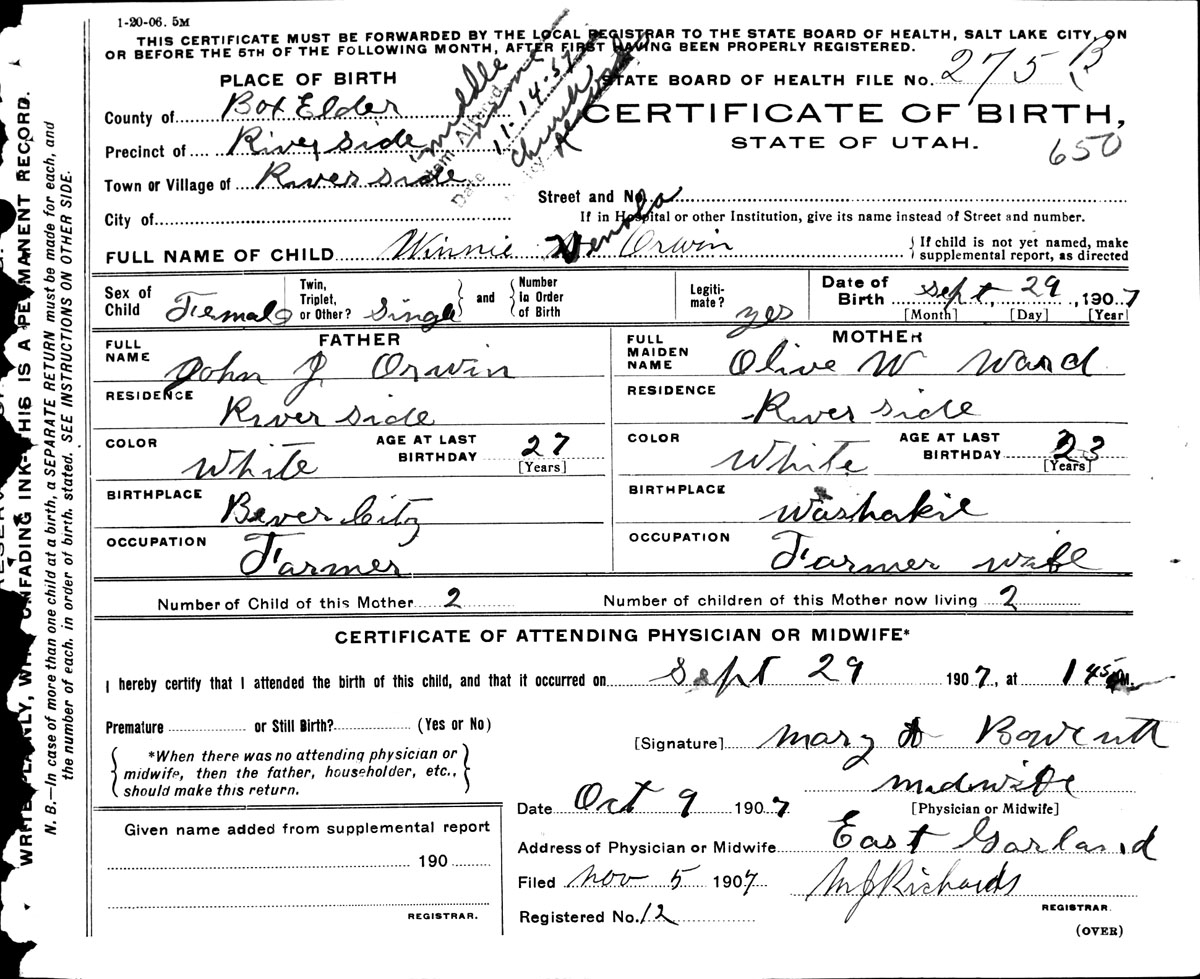 1-20-06. 5M
THIS CERTIFICATE MUST BE FORWARDED BY THE LOCAL REGISTRAR TO THE STATE BOARD OF HEALTH, SALT LAKE CITY, ON
OR BEFORE THE 5TH OF THE FOLLOWING MONTH, AFTER FIRST HAVING BEEN PROPERLY REGISTERED.
PLACE OF BIRTH
STATE BOARD OF HEALTH FILE No. 275 B
County of Box Elder
CERTIFICATE OF BIRTH,
Precinct of River side
STATE OF UTAH.
650
Town or Village of River side
middle name
Item Altered
Date 1-14-57
church
Street and No.
City of
If in Hospital or other Institution, give its name instead of Street and number.
FULL NAME OF CHILD Winnie Wenola Orwin
If child is not yet named, make
supplemental report, as directed
Sex of Child Female
Twin, Triplet, or Other? Single
and Number In Order of Birth
Legiti- mate? yes
Date of Birth Sept, 29, 1907
[Month] [Day] [Year]
FATHER
MOTHER
FULL NAME John J Orwin
FULL MAIDEN NAME Olive W Ward
RESIDENCE River side
RESIDENCE River side
COLOR White
AGE AT LAST BIRTHDAY 27 [Years]
COLOR White
AGE AT LAST BIRTHDAY 23 [Years]
BIRTHPLACE Bever City
BIRTHPLACE Washakie
OCCUPATION Farmer
OCCUPATION Farmer wife
Number of Child of this Mother 2
Number of children of this Mother now living 2
CERTIFICATE OF ATTENDING PHYSICIAN OR MIDWIFE*
I hereby certify that I attended the birth of this child, and that it occurred on Sept 29 1907, at 1 45
Premature or Still Birth? (Yes or No)
[Signature] Mary
*When there was no attending physician or
midwife, then the father, householder, etc.,
should make this return.
midwife
[Physician or Midwife]
Date Oct 9 1907
Given name added from supplemental report
Address of Physician or Midwife East Garland
190
Filed Nov 5 1907
M J Richards
REGISTRAR.
REGISTRAR.
Registered No. 12
(OVER)
WRITE PLAINLY, WITH UNFADING INK—THIS IS A PERMANENT RECORD.
N. B.—In case of more than one child at a birth, a SEPARATE RETURN must be made for each, and
the number of each, in order of birth, stated. SEE INSTRUCTIONS ON OTHER SIDE.